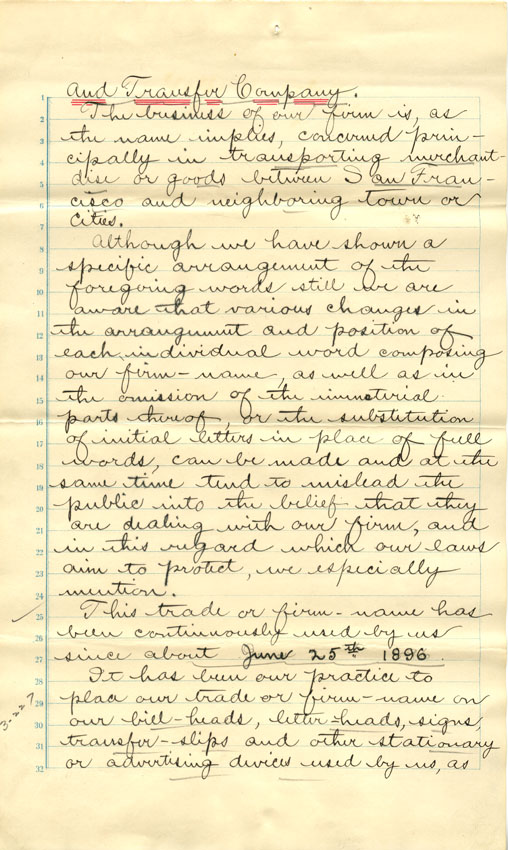 1 And Transfer Company.
2 The business of our firm is, as
3 the name implies, concerned prin-
4 cipally in transporting merchant-
5 dise or goods between San Fran-
6 cisco and neighboring town or
7 cities.
8 Although we have shown a
9 specific arrangement of the
10 foregoing words still we are
11 aware that various changes in
12 the arrangement and position of
13 each individual word composing
14 our firm-name, as well as in
15 the omission of the immaterial
16 parts thereof, or the substitution
17 of initial letters in place of full
18 words, can be made and at the
19 same time tend to mislead the
20 public into the belief that they
21 are dealing with our firm, and
22 in this regard which our laws
23 aim to protect, we especially
24 mention.
25 This trade or firm-name has
26 been continuously used by us
27 since about June 25th 1896.
28 It has been our practice to
29 place our trade or firm-name on
30 our bill-heads, letter-heads, signs,
31 transfer-slips and other stationary
32 or advertising devices used by us, as
3-227